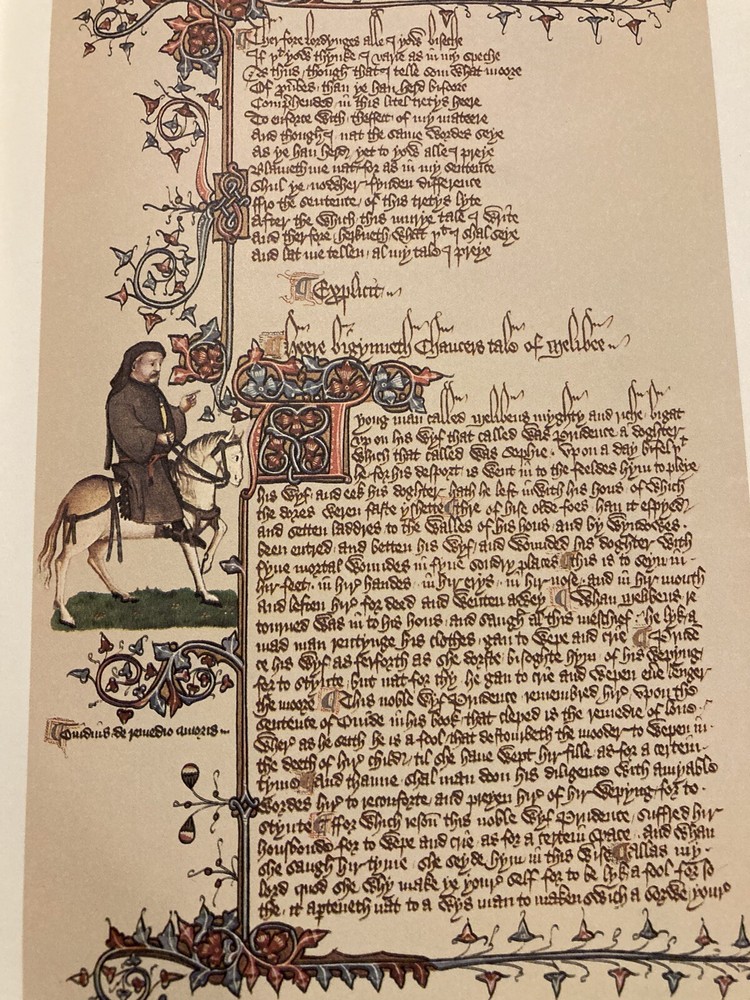 Therfore lordynges alle I yow biseche
If yt yow thynke I varie as in my speche
As thus, though that I telle som what moore
Of prouerbes, than ye han herd bifore
Comprehended in this litel tretys heere
To enforce with theffect of my mateere
And though I nat the same wordes seye
As ye han herd, yet to yow alle I preye
Blameth me nat, for as in my sentence
Shul ye nowher fynden difference
ffro the sentence, of this tretys lyte
After the which this murye tale I write
And therfore herkneth what yt I shal seye
And lat me tellen, al my tale I preye
Explicit
Heere bigynneth Chaucers tale of Melibee
A yong man called Melibeus myghty and riche bigat
vp on his wyf that called was Prudence a doghter
which that called was Sophie. Vpon a day bifel yt
he for his desport is went in to the feeldes hym to pleye
his wyf and eek his doghter hath he left inwith his hous of which
the dores weren faste yshette thre of hise olde foes han it espyed
and setten laddres to the walles of his hous and by wyndowes
been entred and betten his wyf and wounded his doghter with
fyue mortal woundes in fyue sondry places this is to seyn in
hir feet, in hir handes, in hir erys, in hir nose, and in hir mouth
and leften hir for deed and wenten awey Whan Melibeus re
tourned was in to his hous and saugh al this meschief, he lyk a
mad man rentynge his clothes, gan to wepe and crie Pruden
ce his wyf as ferforth as she dorste bisoghte hym of his wepyng
for to stynte, but nat for thy he gan to crie and wepen euer lenger
the moore This noble wyf Prudence remembred hir vpon the
sentence of Ouide in his book that cleped is the remedie of loue
wher as he seith he is a fool that destourbeth the mooder to wepen in
the deeth of hir child, til she haue wept hir fille as for a certein
tyme and thanne shal man doon his diligence with amyable
wordes hir to reconforte and preyen hir of hir wepyng for to
stynte ffor which reson this noble wyf Prudence suffred hir
housbonde for to wepe and crie as for a certein space, and whan
she saugh hir tyme she seyde hym in this wise Allas my
lord quod she why make ye your self for to be lyk a fool for so
the it aperteneth nat to a wys man to maken swich a sorwe your
Ouidius de remedio amoris